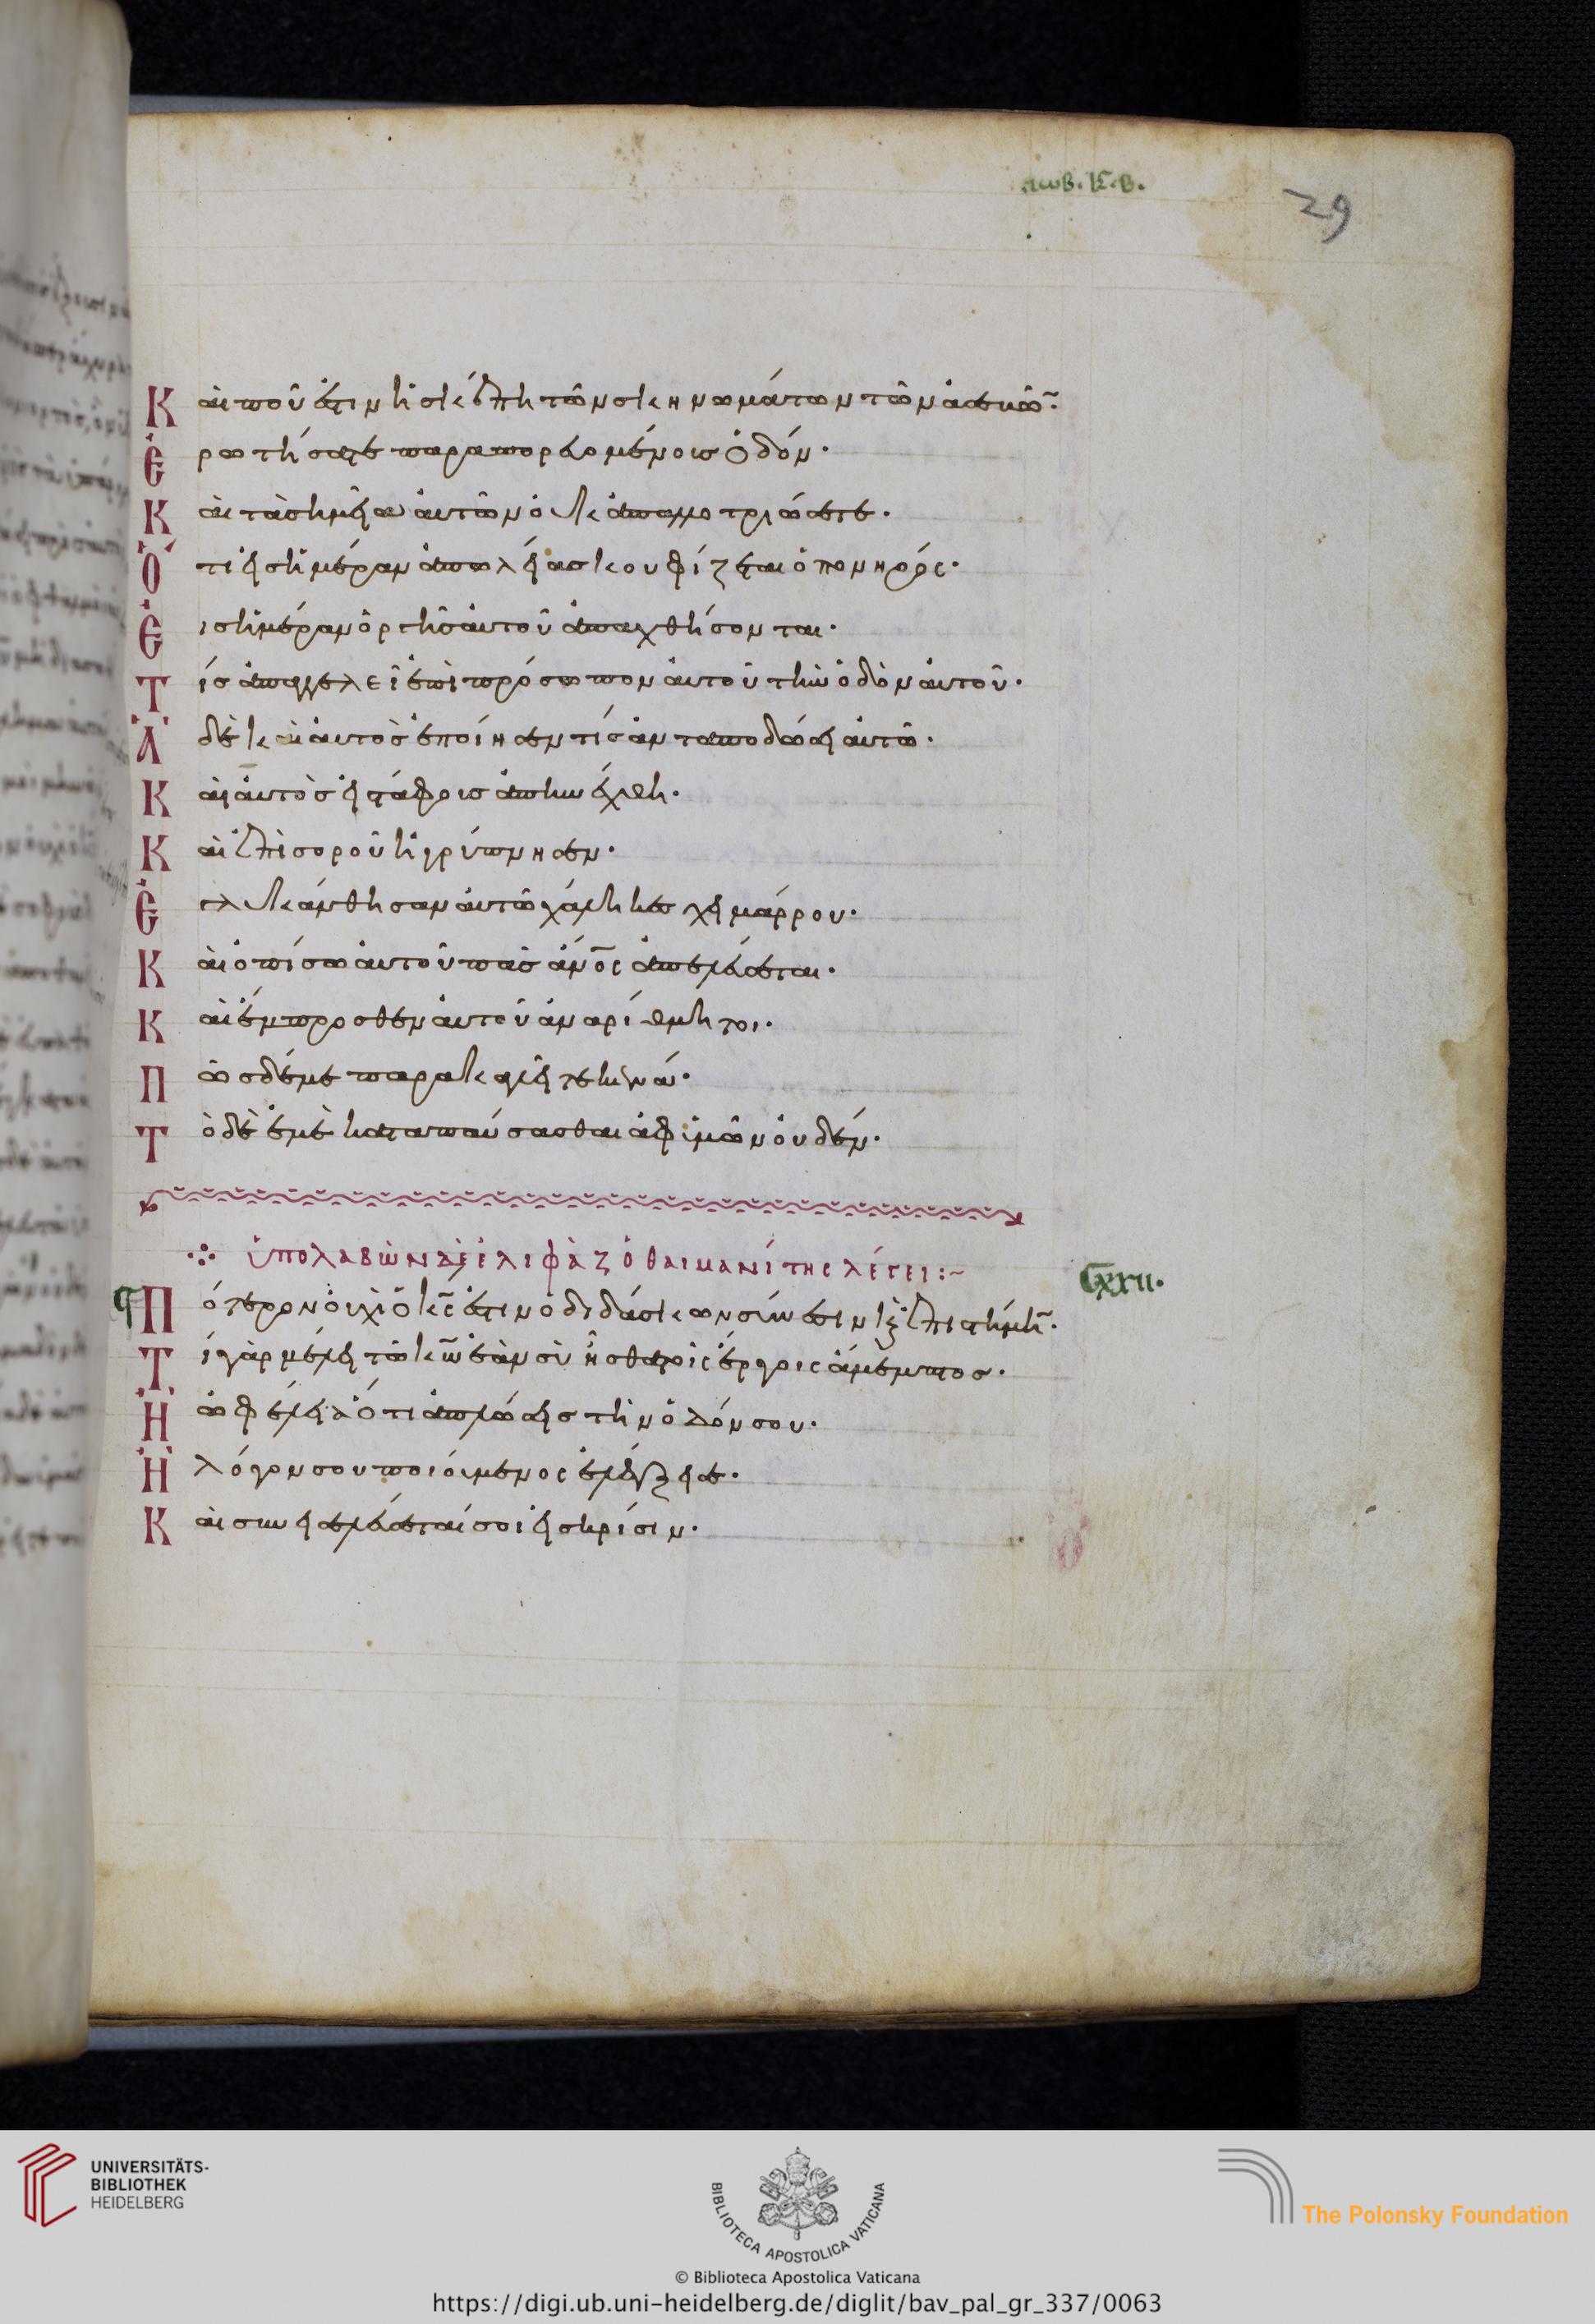 ιωβ. κ̅β.
29
Καὶ ποῦ ἐστιν ἡ σκέπη τῶν σκηνωμάτων τῶν ἀσεβῶ̅·
Ἐρωτήσατε παραπορευομένοις ὁδόν·
Καὶ τὰ σημεῖα αὐτῶν οὐκ ἀπαλλοτριώσετε·
Ὅτι εἰς ἡμέραν ἀπωλείας κουφίζεται ὁ πονηρός·
Εἰς ἡμέραν ὀργῆς αὐτοῦ ἀπαχθήσονται·
Τίς ἀπαγγελεῖ ἐπὶ πρόσωπον αὐτοῦ τὴν ὁδὸν αὐτοῦ·
Ἃ δὲ καὶ αὐτὸς ἐποίησεν τίς ἀνταποδώσει αὐτῶ·
Καὶ αὐτὸς εἰς τάφοις ἀπηνέχθη·
Καὶ ἐπὶ σορου ἠγρύπνησεν·
Ἐγλυκάνθησαν αὐτῶ χάλικες χειμάρρου·
Καὶ ὀπίσω αὐτοῦ πᾶς ἄν̅ος ἀπελεύσεται·
Καὶ ἔμπροσθεν αὐτοῦ ἀναρίθμητοι·
Πῶς δέ με παρακαλεῖτε κενά·
Τὸ δὲ ἐμὲ καταπαύσασθαι ἀφ ὑμῶν οὐδέν·
ὑπολαβὼν δὲ ἐλιφὰζ ὁ θαιμανίτης λέγει :~
Πότερον οὐχὶ ὁ κ̅ς ἐστιν ὁ διδάσκων σύνεσιν κ ἐπιστήμη̅·
CXXII.
Τί γὰρ μέλει τῶ κ̅ω ἐὰν σὺ ἦσθα τοῖς ἔργοις ἄμεμπτος·
Ἢ ὠφέλεια ὅτι ἁπλώσεις τὴν ὁδόν σου·
Ἢ λόγον σου ποιούμενος ἐλέγξει σε·
Καὶ συνεισελεύσεταί σοι εἰς κρίσιν·
UNIVERSITÄTS-
BIBLIOTHEK
HEIDELBERG
BIBLIOTECA APOSTOLICA VATICANA
The Polonsky Foundation
© Biblioteca Apostolica Vaticana
https://digi.ub.uni-heidelberg.de/diglit/bav_pal_gr_337/0063